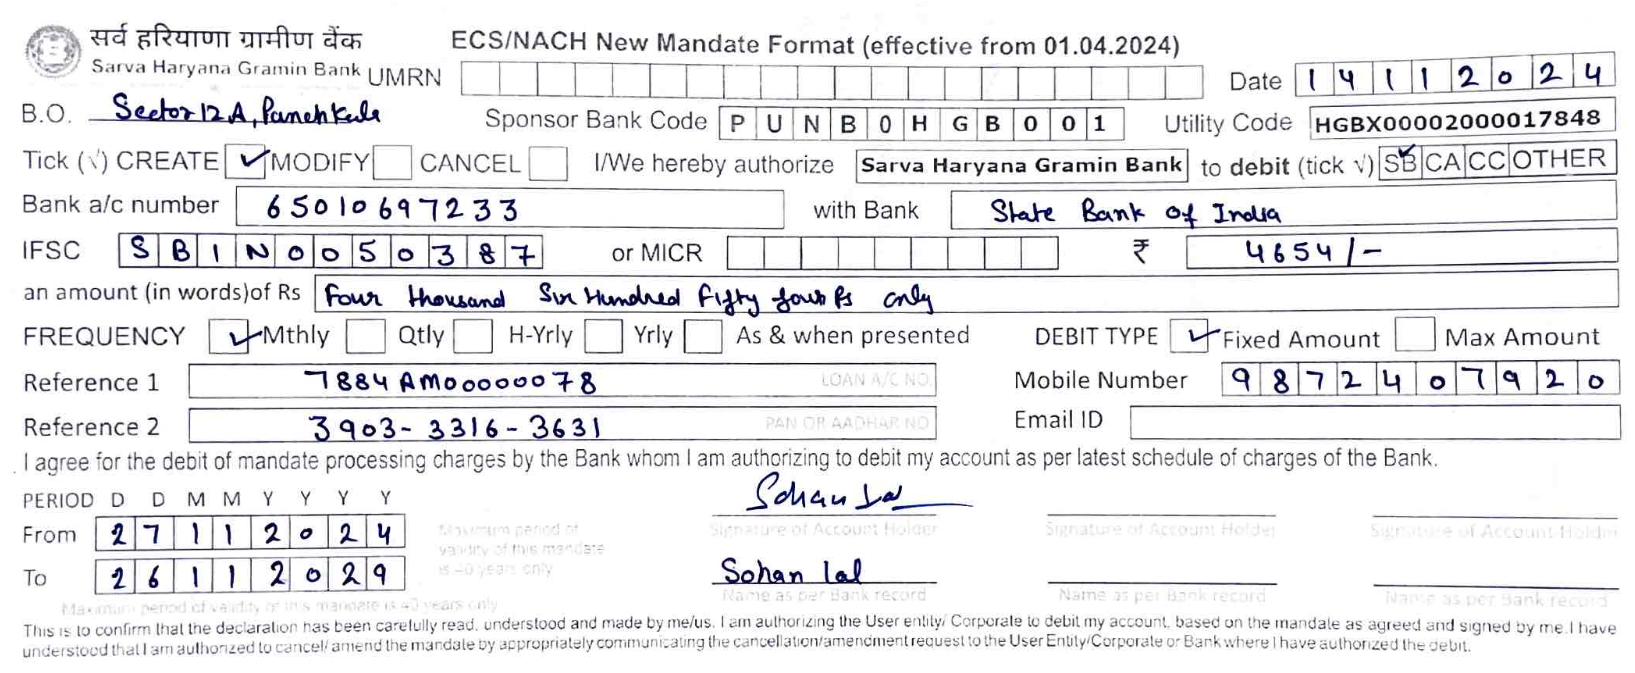 सर्व हरियाणा ग्रामीण बैंक ECS/NACH New Mandate Format (effective from 01.04.2024)
Sarva Haryana Gramin Bank UMRN Date 14112024
B.O. Sector 12A, Panchkula Sponsor Bank Code PUNB0HGB001 Utility Code HGBX00002000017848
Tick (√) CREATE ✓ MODIFY CANCEL I/We hereby authorize Sarva Haryana Gramin Bank to debit (tick √) SB ✓ CA CC OTHER
Bank a/c number 65010697233 with Bank State Bank of India
IFSC SBIN0050387 or MICR ₹ 4654/-
an amount (in words)of Rs Four thousand Six Hundred Fifty four Rs only
FREQUENCY ✓ Mthly Qtly H-Yrly Yrly As & when presented DEBIT TYPE ✓ Fixed Amount Max Amount
Reference 1 7884AM00000078 LOAN A/C NO. Mobile Number 9872407920
Reference 2 3903-3316-3631 PAN OR AADHAR NO Email ID
I agree for the debit of mandate processing charges by the Bank whom I am authorizing to debit my account as per latest schedule of charges of the Bank.
PERIOD D D M M Y Y Y Y Sohan Lal
From 27112024 Maximum period of validity of this mandate is 40 years only Signature of Account Holder Signature of Account Holder Signature of Account Holder
To 26112029 Sohan lal
Name as per Bank record Name as per Bank record Name as per Bank record
Maximum period of validity of this mandate is 40 years only
This is to confirm that the declaration has been carefully read, understood and made by me/us. I am authorizing the User entity/ Corporate to debit my account, based on the mandate as agreed and signed by me.I have
understood that I am authorized to cancel/ amend the mandate by appropriately communicating the cancellation/amendment request to the User Entity/Corporate or Bank where I have authorized the debit.